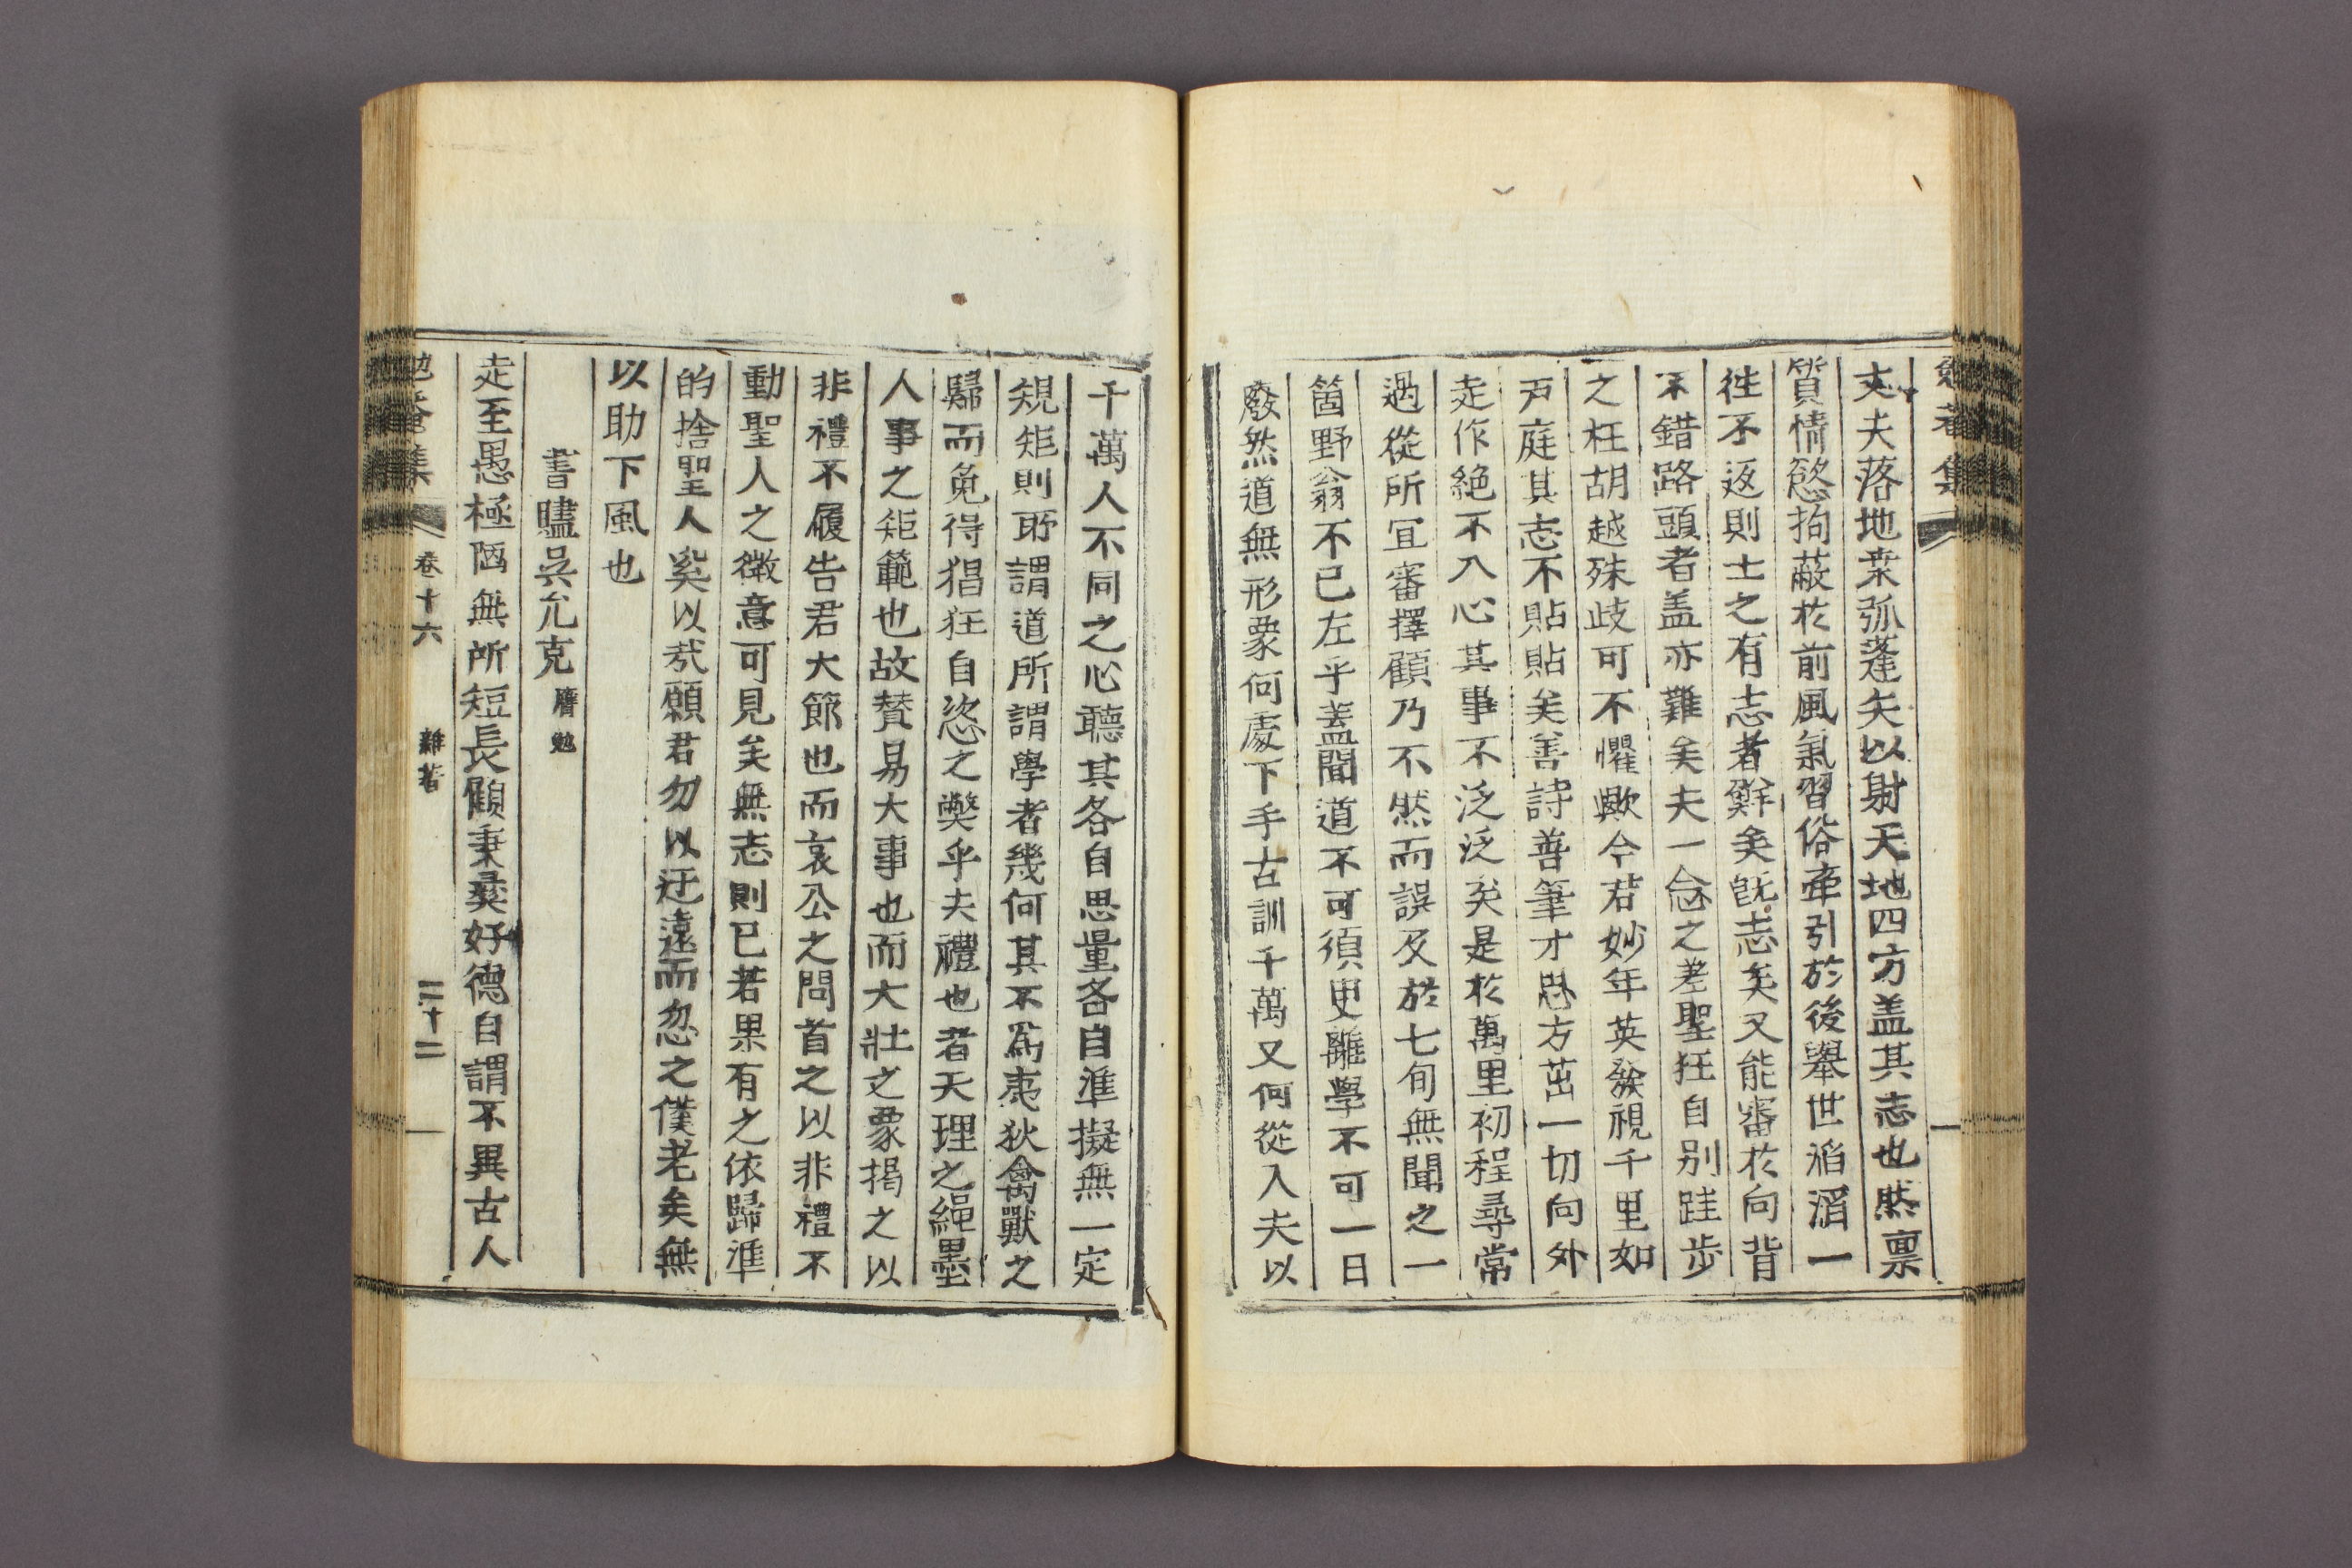 丈夫落地桒弧蓬矢以射天地四方盖其志也然禀
質情慾拘蔽於前風氣習俗牽引於後舉世滔滔一
徃不返則士之有志者鮮矣旣志矣又能審於向背
不錯路頭者盖亦難矣夫一念之差聖狂自別跬步
之枉胡越殊歧可不懼歟今君妙年英發視千里如
戶庭其志不貼貼矣善詩善筆才思方茁一切向外
走作絶不入心其事不泛泛矣是於萬里初程尋常
過從所宜審擇顧乃不然而誤及於七旬無聞之一
箇野翁不已左乎盖聞道不可須臾離學不可一日
廢然道無形象何處下手古訓千萬又何從入夫以
千萬人不同之心聽其各自思量各自準擬無一定
規矩則所謂道所謂學者幾何其不爲夷狄禽獸之
歸而免得猖狂自恣之獘乎夫禮也者天理之繩墨
人事之矩範也故贊易大事也而大壯之象揭之以
非禮不履告君大節也而哀公之問首之以非禮不
動聖人之微意可見矣無志則已若果有之依歸準
的捨聖人奚以㢤願君勿以迂遠而忽之僕老矣無
以助下風也
書贐吳允克 膺勉
走至愚極陋無所短長顧秉彛好德自謂不異古人
集 卷十六 雜著 三十二